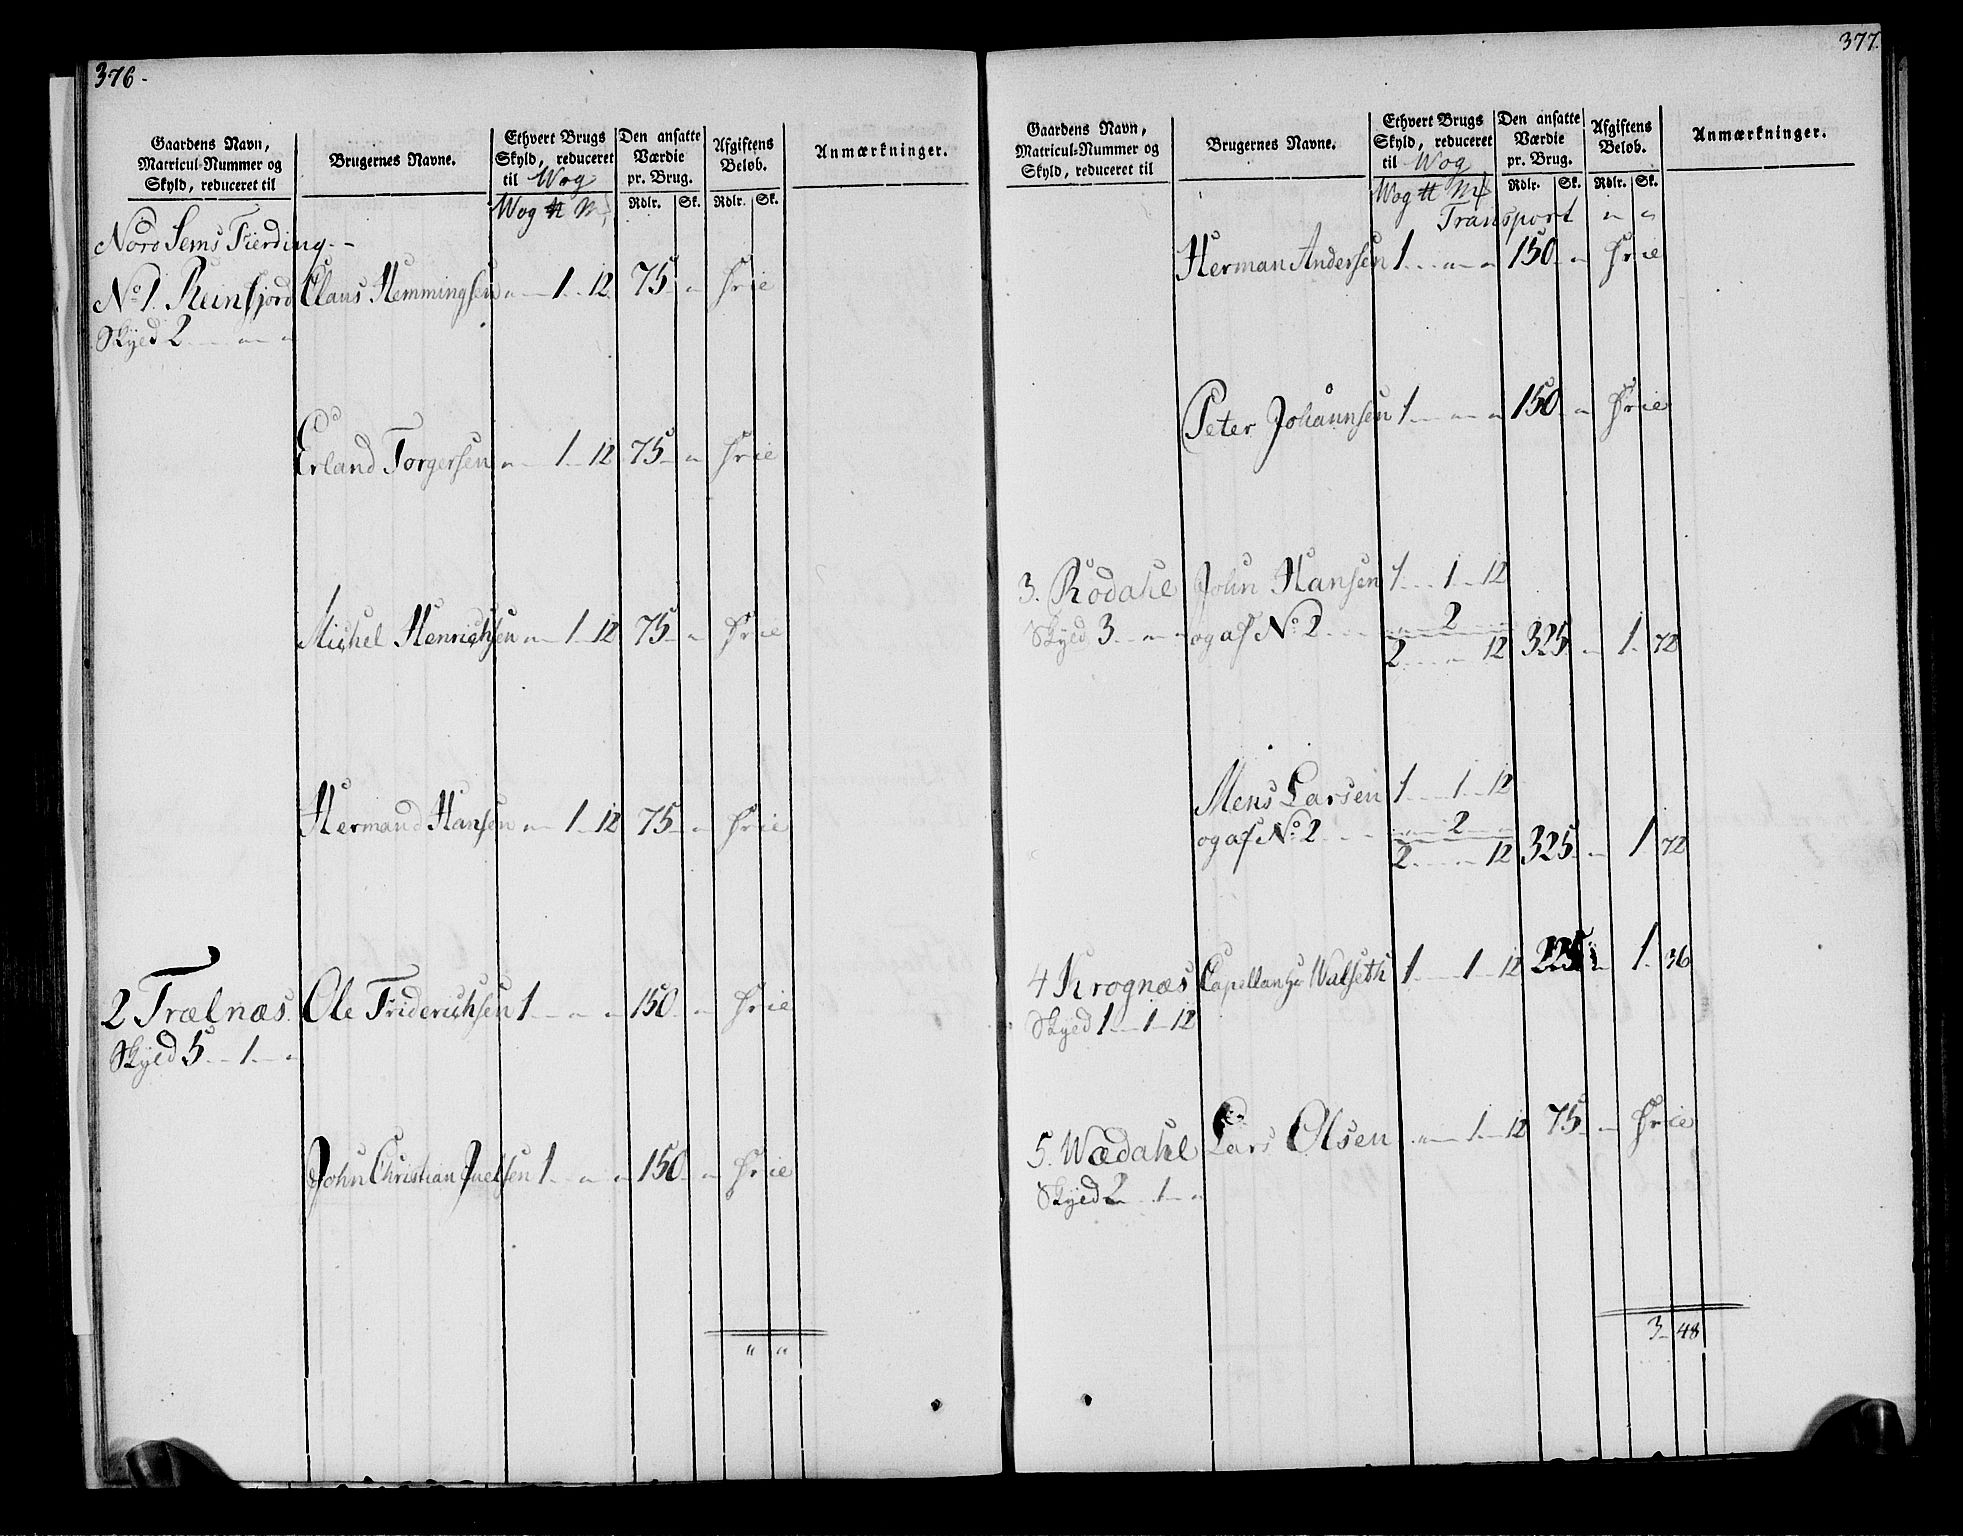 376.
Gaardens Navn, Matricul-Nummer og Skyld, reduceret til
Brugernes Navne.
Ethvert Brugs Skyld, reduceret til Wog
Den ansatte Værdie pr. Brug.
Afgiftens Beløb.
Anmærkninger.
Wog ℔ Mk Rdlr. Sk. Rdlr. Sk.
Nord Sems Fierding
No 1. Reinsfjord Claus Hemmingsen " 1 12 75 " Frie
Skyld 2 " "
Erland Torgersen " 1 12 75 " Frie
Michel Henrichsen " 1 12 75 " Frie
Hermand Hansen " 1 12 75 " Frie
2 Trælnæs Ole Friderichsen 1 " " 150 " Frie
Skyld 5 1 "
John Christian Juelsen 1 " " 150 " Frie
" "
377.
Gaardens Navn, Matricul-Nummer og Skyld, reduceret til
Brugernes Navne.
Ethvert Brugs Skyld, reduceret til Wog
Den ansatte Værdie pr. Brug.
Afgiftens Beløb.
Anmærkninger.
Wog ℔ Mk Rdlr. Sk. Rdlr. Sk.
Transport " "
Herman Andersen 1 " " 150 " Frie
Peter Johannsen 1 " " 150 " Frie
3. Rodahl John Hansen 1 1 12
Skyld 3 " " og af No 2 " 2 "
2 " 12 325 " 1 72
Mens Larsen 1 1 12
og af No 2 " 2 "
2 " 12 325 " 1 72
4 Krognæs Capellan Hr Walseth 1 1 12 225 " 1 36
Skyld 1 1 12
5. Wædahl Lars Olsen " 1 12 75 " Frie
Skyld 2 1 "
3 48